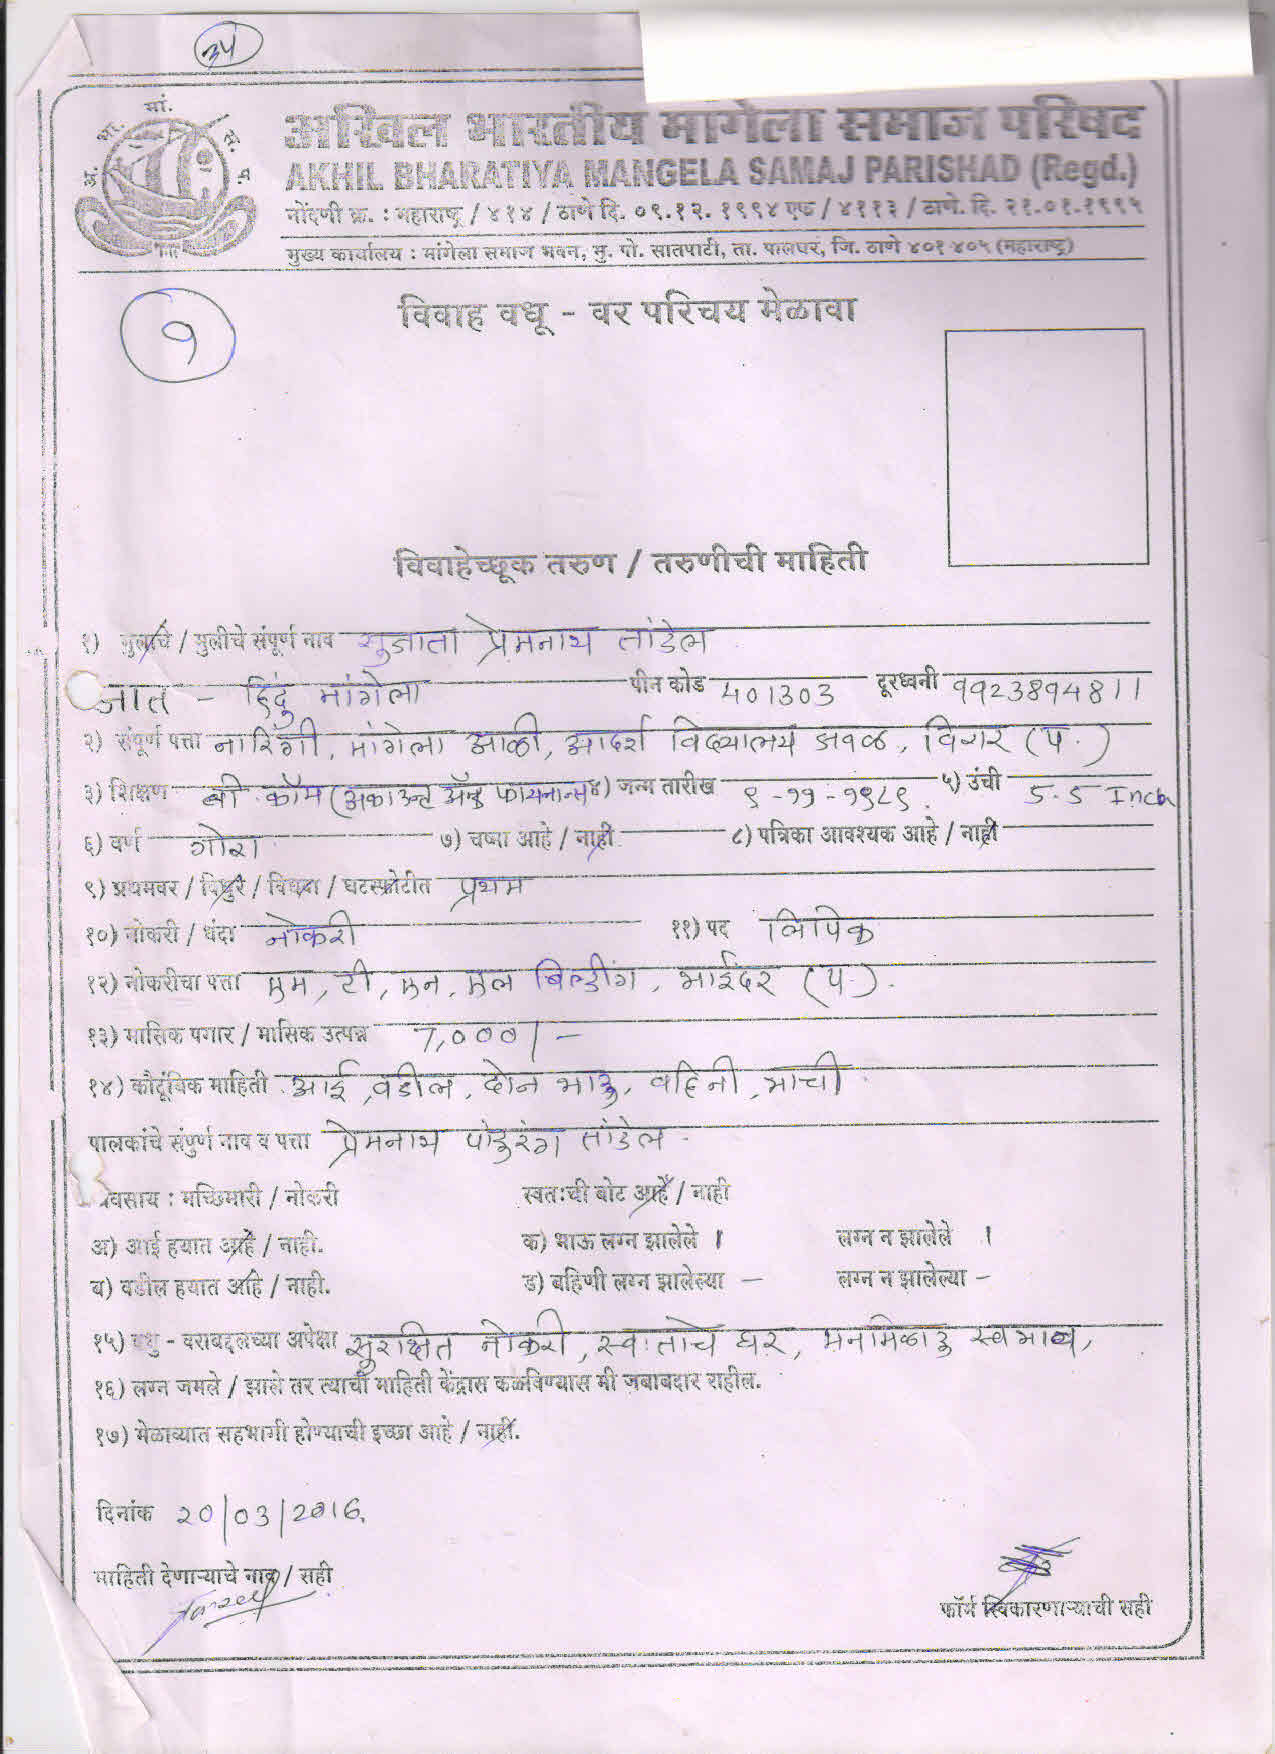 ३५
अ. भा. मां. स. प.
अखिल भारतीय मांगेला समाज परिषद
AKHIL BHARATIYA MANGELA SAMAJ PARISHAD (Regd.)
नोंदणी क्र. : महाराष्ट्र / ४१४ / ठाणे दि. ०९.१२. १९९४ एफ / ४११३ / ठाणे. दि. २१.०१.१९९५
मुख्य कार्यालय : मांगेला समाज भवन, मु. पो. सातपाटी, ता. पालघर, जि. ठाणे ४०१ ४०५ (महाराष्ट्र)
१
विवाह वधू - वर परिचय मेळावा
विवाहेच्छूक तरुण / तरुणीची माहिती
१) मुलाचे / मुलीचे संपूर्ण नाव सुजाता प्रेमनाथ तांडेल
जात - हिंदु मांगेला पीन कोड 401303 दूरध्वनी 9923894811
२) संपूर्ण पत्ता नारिंगी, मांगेला आळी, आदर्श विद्यालय जवळ, विरार (प.)
३) शिक्षण बी.कॉम (अकाउन्ट अॅन्ड फायनान्स ४) जन्म तारीख ९-११-१९८९. ५) उंची 5.5 Inch
६) वर्ण गोरा ७) चष्मा आहे / नाही ८) पत्रिका आवश्यक आहे / नाही
९) प्रथमवर / विधुर / विधवा / घटस्फोटीत प्रथम
१०) नोकरी / धंदा नोकरी ११) पद लिपिक
१२) नोकरीचा पत्ता एम, टी, एन, एल बिल्डींग, भाईंदर (प.).
१३) मासिक पगार / मासिक उत्पन्न 7,000/-
१४) कौटूंबिक माहिती आई, वडील, दोन भाऊ, वहिनी, भाची
पालकांचे संपुर्ण नाव व पत्ता प्रेमनाथ पांडुरंग तांडेल.
वसाय : मच्छिमारी / नोकरी स्वतःची बोट आहे / नाही
अ) आई हयात आहे / नाही. क) भाऊ लग्न झालेले 1 लग्न न झालेले 1
ब) वडील हयात आहे / नाही. ड) बहिणी लग्न झालेल्या - लग्न न झालेल्या -
१५) वधु - वराबद्दलच्या अपेक्षा सुरक्षित नोकरी, स्वःताचे घर, मनमिळाऊ स्वभाव,
१६) लग्न जमले / झाले तर त्याची माहिती केंद्रास कळविण्यास मी जबाबदार राहील.
१७) मेळाव्यात सहभागी होण्याची इच्छा आहे / नाही.
दिनांक 20/03/2016.
माहिती देणाऱ्याचे नाव / सही
फॉर्म स्विकारणाऱ्याची सही